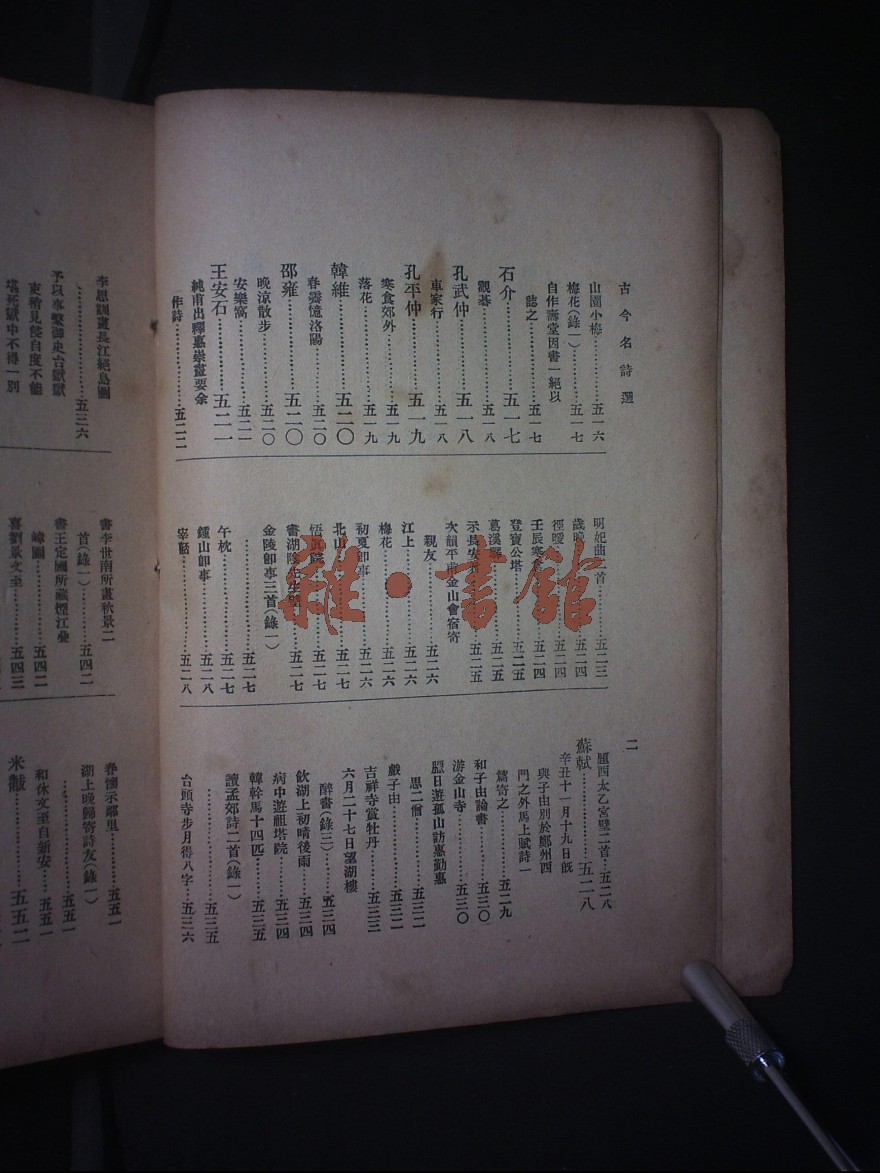 古今名詩選
山園小梅…………五一六
梅花(錄一)………五一七
自作壽堂因書一絕以
誌之…………五一七
石介…………五一七
觀碁…………五一八
孔武仲…………五一八
車家行…………五一八
孔平仲…………五一九
寒食郊外…………五一九
落花…………五一九
韓維…………五二〇
春雲憶洛陽…………五二〇
邵雍…………五二〇
晚涼散步…………五二〇
安樂窩…………五二一
王安石…………五二一
純甫出釋惠崇畫要余
作詩…………五二二
明妃曲二首…………五二三
歲晚…………五二四
徑暖…………五二四
壬辰寒食…………五二四
登寶公塔…………五二五
葛溪驛…………五二五
示長安君…………五二五
次韻平甫金山會宿寄
親友…………五二六
江上…………五二六
梅花…………五二六
初夏卽事…………五二六
北山…………五二七
悟真院…………五二七
書湖陰先生壁…………五二七
金陵卽事三首(錄一)
…………五二七
午枕…………五二七
鍾山卽事…………五二八
…………五二八
二
題西太乙宮壁二首…五二八
蘇軾…………五二八
辛丑十一月十九日旣
與子由別於鄭州西
門之外馬上賦詩一
篇寄之…………五二九
和子由論書…………五三〇
游金山寺…………五三〇
臘日遊孤山訪惠勤惠
思二僧…………五三二
戲子由…………五三二
吉祥寺賞牡丹………五三三
六月二十七日望湖樓
醉書(錄三)………五三四
飲湖上初晴後雨……五三四
病中遊祖塔院………五三四
韓幹馬十四匹………五三五
讀孟郊詩二首(錄一)
…………五三五
台頭寺步月得人字…五三六
李思訓畫長江絕島圖
…………五三六
予以事繫御史台獄獄
吏稍見侵自度不能
堪死獄中不得一別
書李世南所畫秋景二
首(錄一)………五四二
書王定國所藏煙江疊
嶂圖…………五四二
喜劉景文至………五四三
春懷示鄰里…………五五一
湖上晚歸寄詩友(錄一)
…………五五一
和休文至自新安……五五一
米黻…………五五二
雜·書館